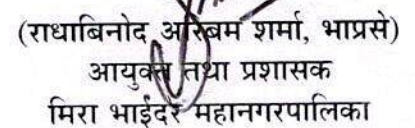 (राधाबिनोद अरिबम शर्मा, भाप्रसे)
आयुक्त तथा प्रशासक
मिरा भाईंदर महानगरपालिका